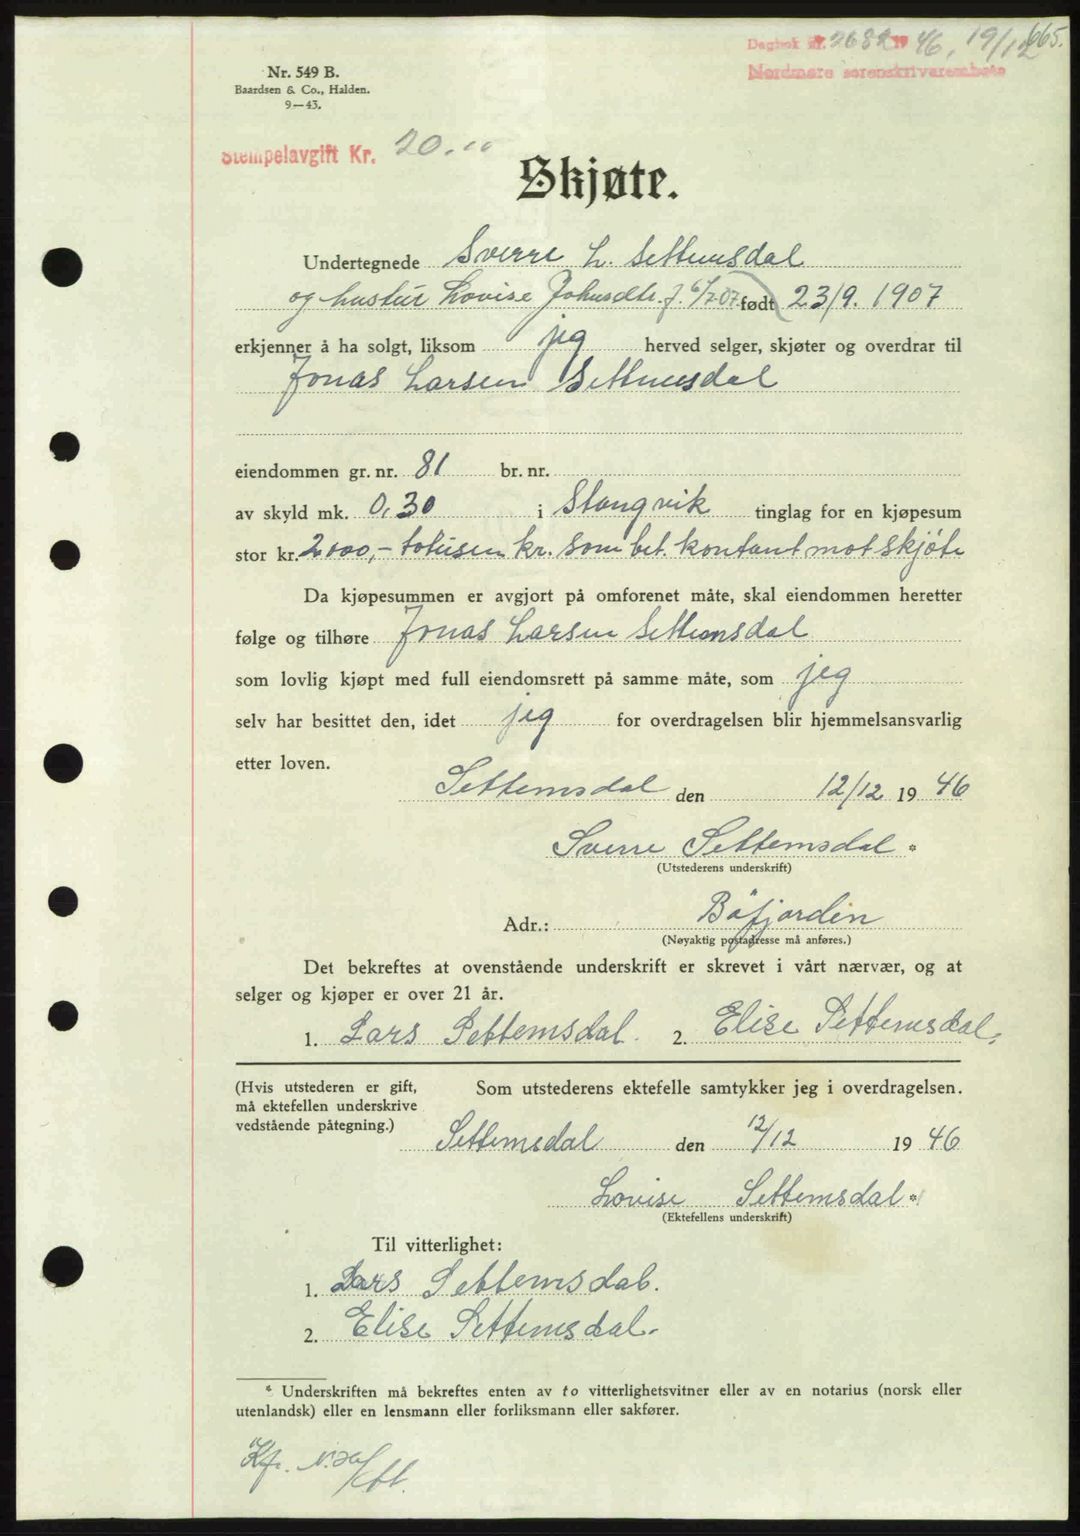 Dagbok nr. 2682 1946, 19/12 665.
Nordmøre sorenskriverembete
Nr. 549 B.
Baardsen & Co., Halden.
9—43.
Stempelavgift Kr. 20.00
Skjøte.
Undertegnede Sverre L. Settemsdal
og hustru Lovise Johnsdtr. f. 6/7-07. født 23/9. 1907
erkjenner å ha solgt, liksom jeg herved selger, skjøter og overdrar til
Jonas Larsen Settemsdal
eiendommen gr. nr. 81 br. nr.
av skyld mk. 0,30 i Stangvik tinglag for en kjøpesum
stor kr. 2000,- totusen kr. som bet. kontant mot skjøte
Da kjøpesummen er avgjort på omforenet måte, skal eiendommen heretter
følge og tilhøre Jonas Larsen Settemsdal
som lovlig kjøpt med full eiendomsrett på samme måte, som jeg
selv har besittet den, idet jeg for overdragelsen blir hjemmelsansvarlig
etter loven.
Settemsdal den 12/12 1946
Sverre Settemsdal *
(Utstederens underskrift)
Adr.: Böfjorden
(Nøyaktig postadresse må anføres.)
Det bekreftes at ovenstående underskrift er skrevet i vårt nærvær, og at
selger og kjøper er over 21 år.
1. Lars Settemsdal. 2. Elise Settemsdal.
(Hvis utstederen er gift,
må ektefellen underskrive
vedstående påtegning.)
Som utstederens ektefelle samtykker jeg i overdragelsen.
Settemsdal den 12/12 1946
Lovise Settemsdal *
(Ektefellens underskrift)
Til vitterlighet:
1. Lars Settemsdal.
2. Elise Settemsdal.
* Underskriften må bekreftes enten av to vitterlighetsvitner eller av en notarius (norsk eller
utenlandsk) eller en lensmann eller forliksmann eller sakfører.
Kfr.